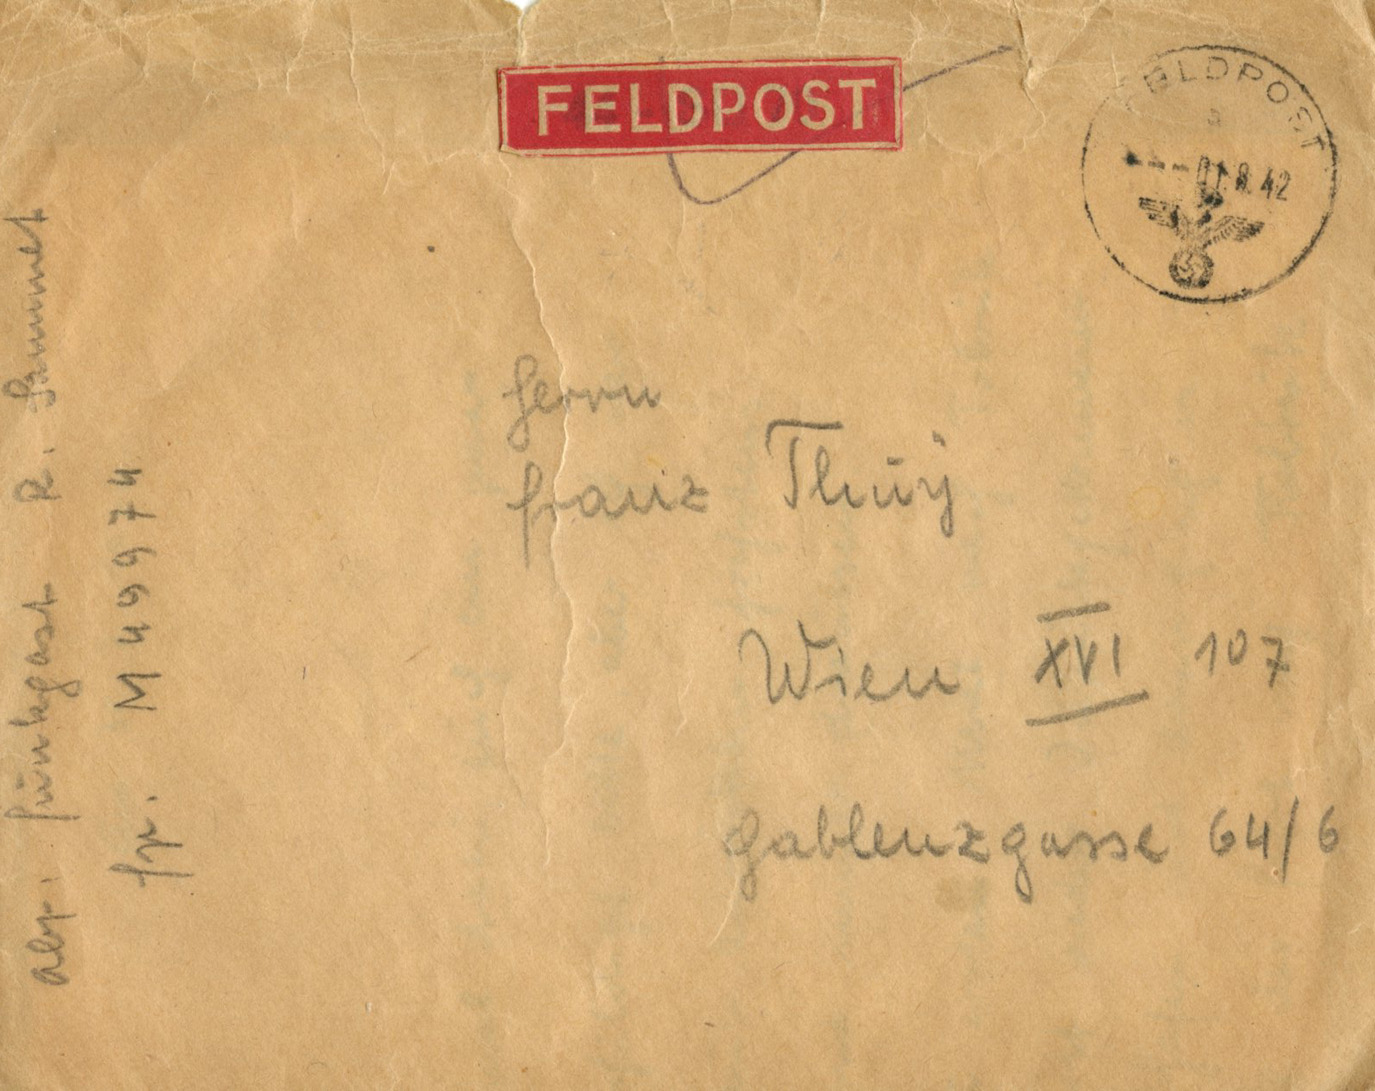 FELDPOST
FELDPOST
a
--- 01.8.42
Herrn
Franz Thüÿ
Wien XVI 107
Gablenzgasse 64/6
Abs. Funkgast R. Sammet
Fp. M 49974